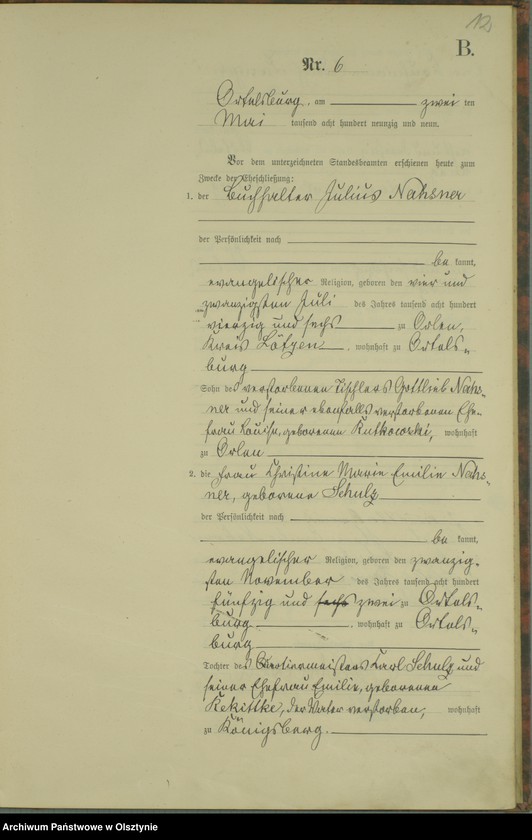 12
B.
Nr. 6
Ortelsburg, am zwei ten
Mai tausend acht hundert neunzig und neun.
Vor dem unterzeichneten Standesbeamten erschienen heute zum
Zwecke der Eheschließung:
1. der Buchhalter Julius Nahsner
der Persönlichkeit nach
be kannt,
evangelischer Religion, geboren den vier und
zwanzigsten Juli des Jahres tausend acht hundert
vierzig und sechs zu Orlen,
Kreis Lötzen, wohnhaft zu Ortels-
burg
Sohn des verstorbenen Tischlers Gottlieb Nahs-
ner und seiner ebenfalls verstorbenen Ehe-
frau Louise, geborenen Rutkowski, wohnhaft
zu Orlen
2. die Frau Christine Marie Emilie Nahs-
ner, geborene Schulz
der Persönlichkeit nach
be kannt,
evangelischer Religion, geboren den zwanzig-
sten November des Jahres tausend acht hundert
fünfzig und sechs zwei zu Ortels-
burg, wohnhaft zu Ortels-
burg
Tochter des Karl Schulz und
seiner Ehefrau Emilie, geborenen
Kekittke, der Vater verstorben, wohnhaft
zu Königsberg.
Archiwum Państwowe w Olsztynie